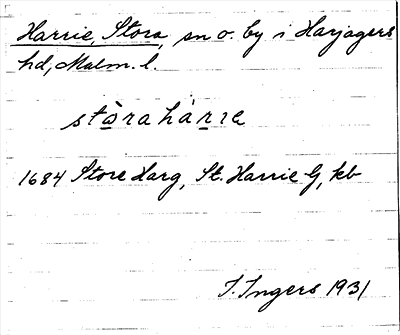 Harrie, Stora, sn o. by i Harjagers
hd, Malm. l.
stòra hàrre
1684 Store Harg, St. Harrie G, kb
I. Ingers 1931